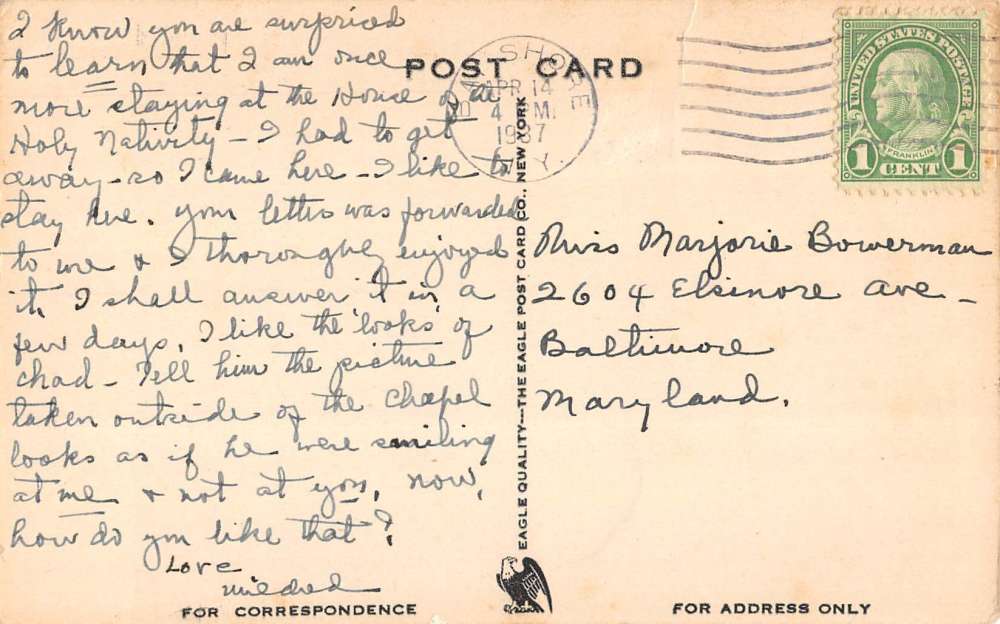 I know you are surprised
to learn that I am once
more staying at the House of the
Holy Nativity - I had to get
away - so I came here - I like to
stay here. Your letter was forwarded
to me & I thoroughly enjoyed
it. I shall answer it in a
few days. I like the 'looks' of
Chad - Tell him the picture
taken outside of the Chapel
looks as if he were smiling
at me & not at you. Now,
how do you like that?
Love
Mildred
FOR CORRESPONDENCE
POST CARD
BAY SHORE
APR 14
4 PM
1937
N.Y.
UNITED STATES POSTAGE
FRANKLIN
1 CENT 1
EAGLE QUALITY---THE EAGLE POST CARD CO., NEW YORK
Miss Marjorie Bowerman
2604 Elsinore Ave -
Baltimore
Maryland.
FOR ADDRESS ONLY